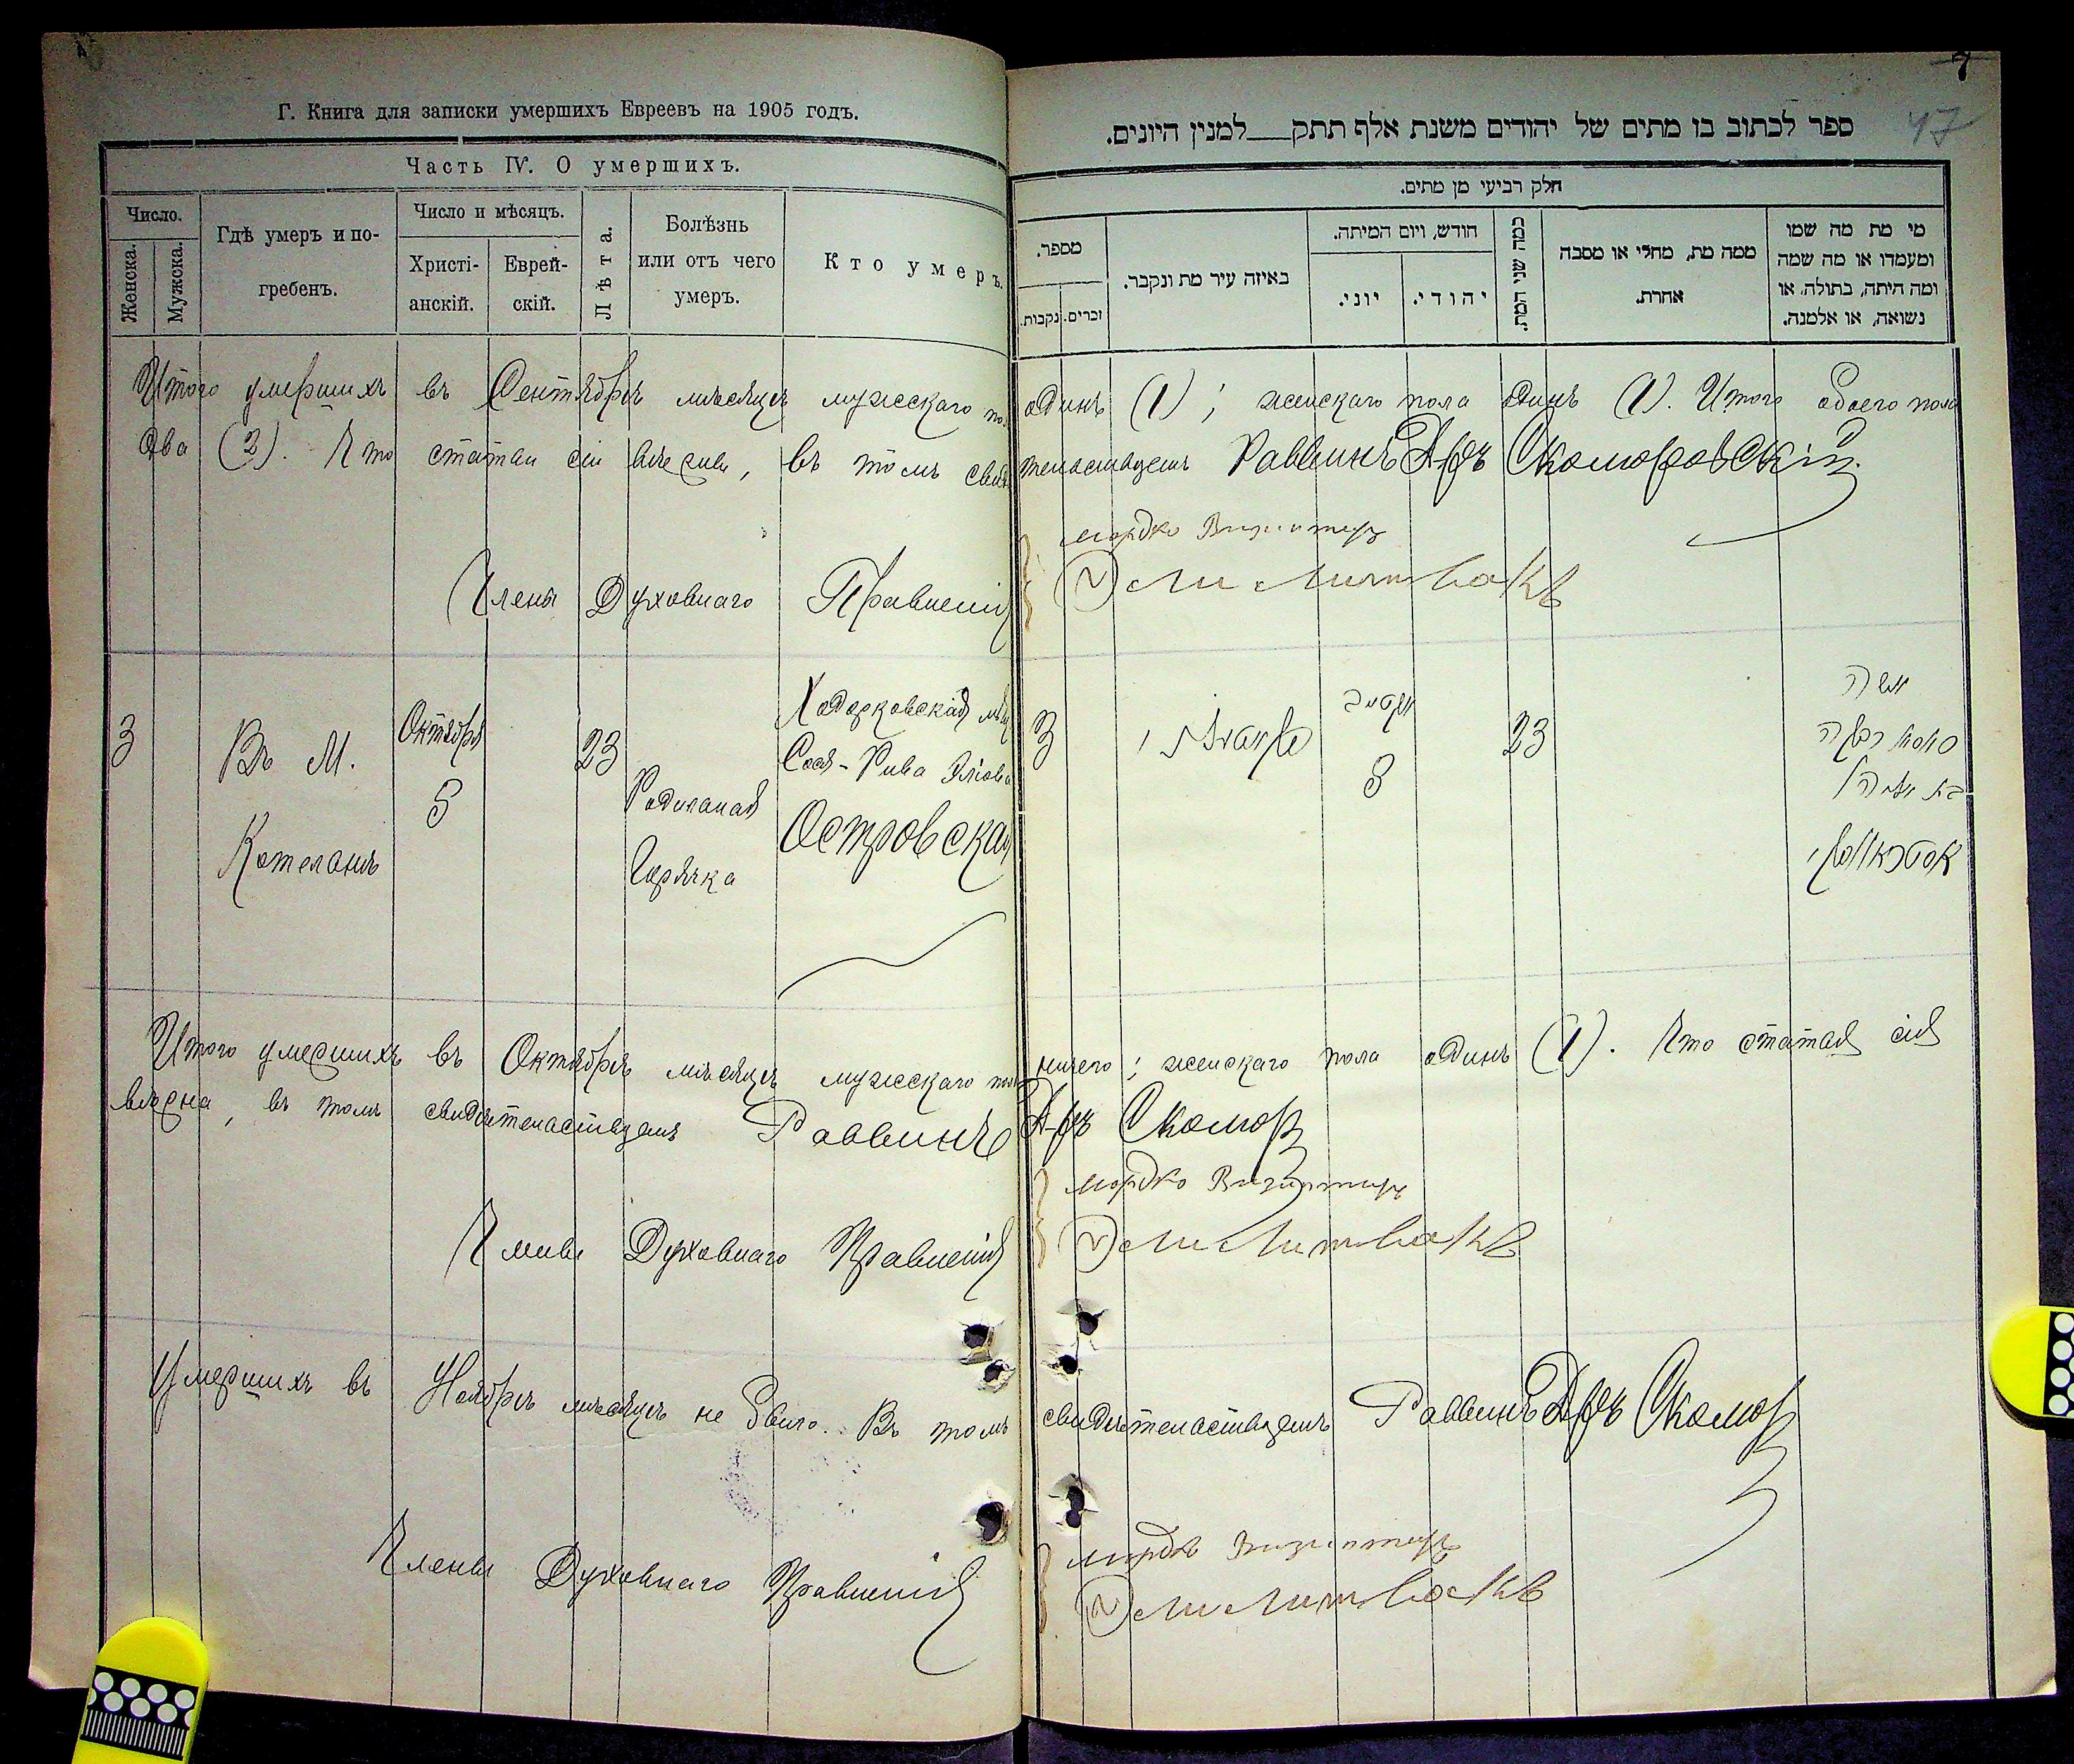 Г. Книга для записки умершихъ Евреевъ на 1905 годъ.
Часть IV. О умершихъ.
Число.
Женска.
Мужска.
Гдѣ умеръ и по-
гребенъ.
Число и мѣсяцъ.
Христі-
анскій.
Еврей-
скій.
Лѣта.
Болѣзнь
или отъ чего
умеръ.
Кто умеръ.
7
47
ספר לכתוב בו מתים של יהודים משנת אלף תתק___למנין היונים.
חלק רביעי מן מתים.
מספר.
נקבות.
זכרים.
באיזה עיר מת ונקבר.
חודש, ויום המיתה.
יוני.
יהודי.
כמה שני המת.
ממה מת, מחלי או מסבה
אחרת.
מי מת מה שמו
ומעמדו או מה שמה
ומה היתה, בתולה, או
נשואה, או אלמנה.
Итого умершихъ въ Сентябрѣ мѣсяцѣ мужскаго по одинъ (1); женскаго пола одинъ (1). Итого обоего пола
два (2). Что статьи сіи вѣрны, въ томъ свидѣтельствуемъ Раввинъ Д-ръ Скоморовскій
Мордко
Члены Духовнаго Правленія
Литвакъ
3
Въ М.
Котельнѣ
Октября
5
23
Родильная
Горячка
Ходорковская мѣщ
Сося-Рива
Островская
3
23
אשה
Итого умершихъ въ Октябрѣ мѣсяцѣ мужскаго пол ничего; женскаго пола одинъ (1). Что статья сія
вѣрна, въ томъ свидѣтельствуемъ Раввинъ Д-ръ Скомор
Мордко
Члены Духовнаго Правленія
Литвакъ
Умершихъ въ Ноябрѣ мѣсяцѣ не было. Въ томъ свидѣтельствуемъ Раввинъ Д-ръ Скомор
Мордко
Члены Духовнаго Правленія
Литвакъ